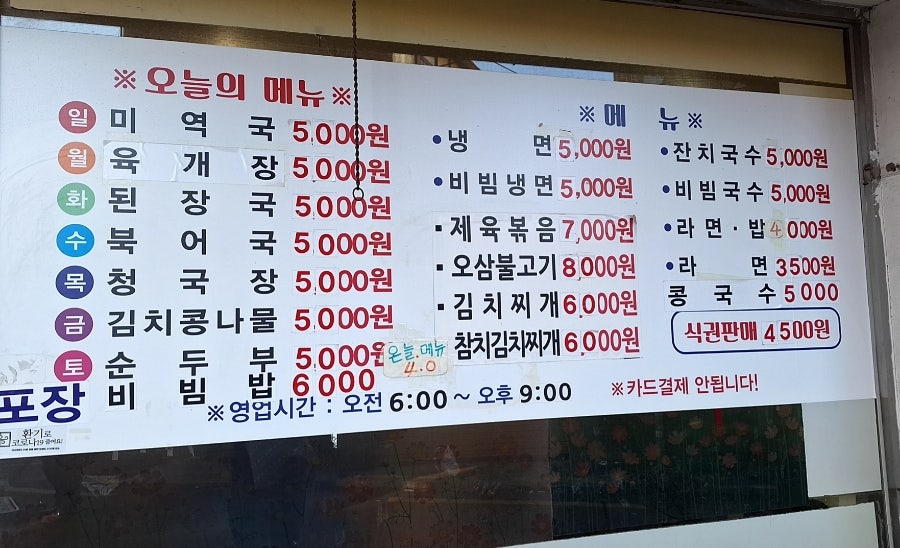 ※오늘의 메뉴※
일 미역국 5,000원
월 육개장 5,000원
화 된장국 5000원
수 북어국 5,000원
목 청국장 5,000원
금 김치콩나물 5,000원
토 순두부 5,000원
비빔밥 6000
온늘.메뉴
4.0
※메뉴※
•냉면 5,000원
•비빔냉면 5,000원
▪제육볶음 7,000원
▪오삼불고기 8,000원
▪김치찌개 6,000원
참치김치찌개 6,000원
•잔치국수 5,000원
•비빔국수 5,000원
•라면·밥 4000원
•라면 3500원
콩국수 5000
식권판매 4500원
포장
※영업시간 : 오전 6:00 ~ 오후 9:00
※카드결제 안됩니다!
환기로
코로나19 줄여요!